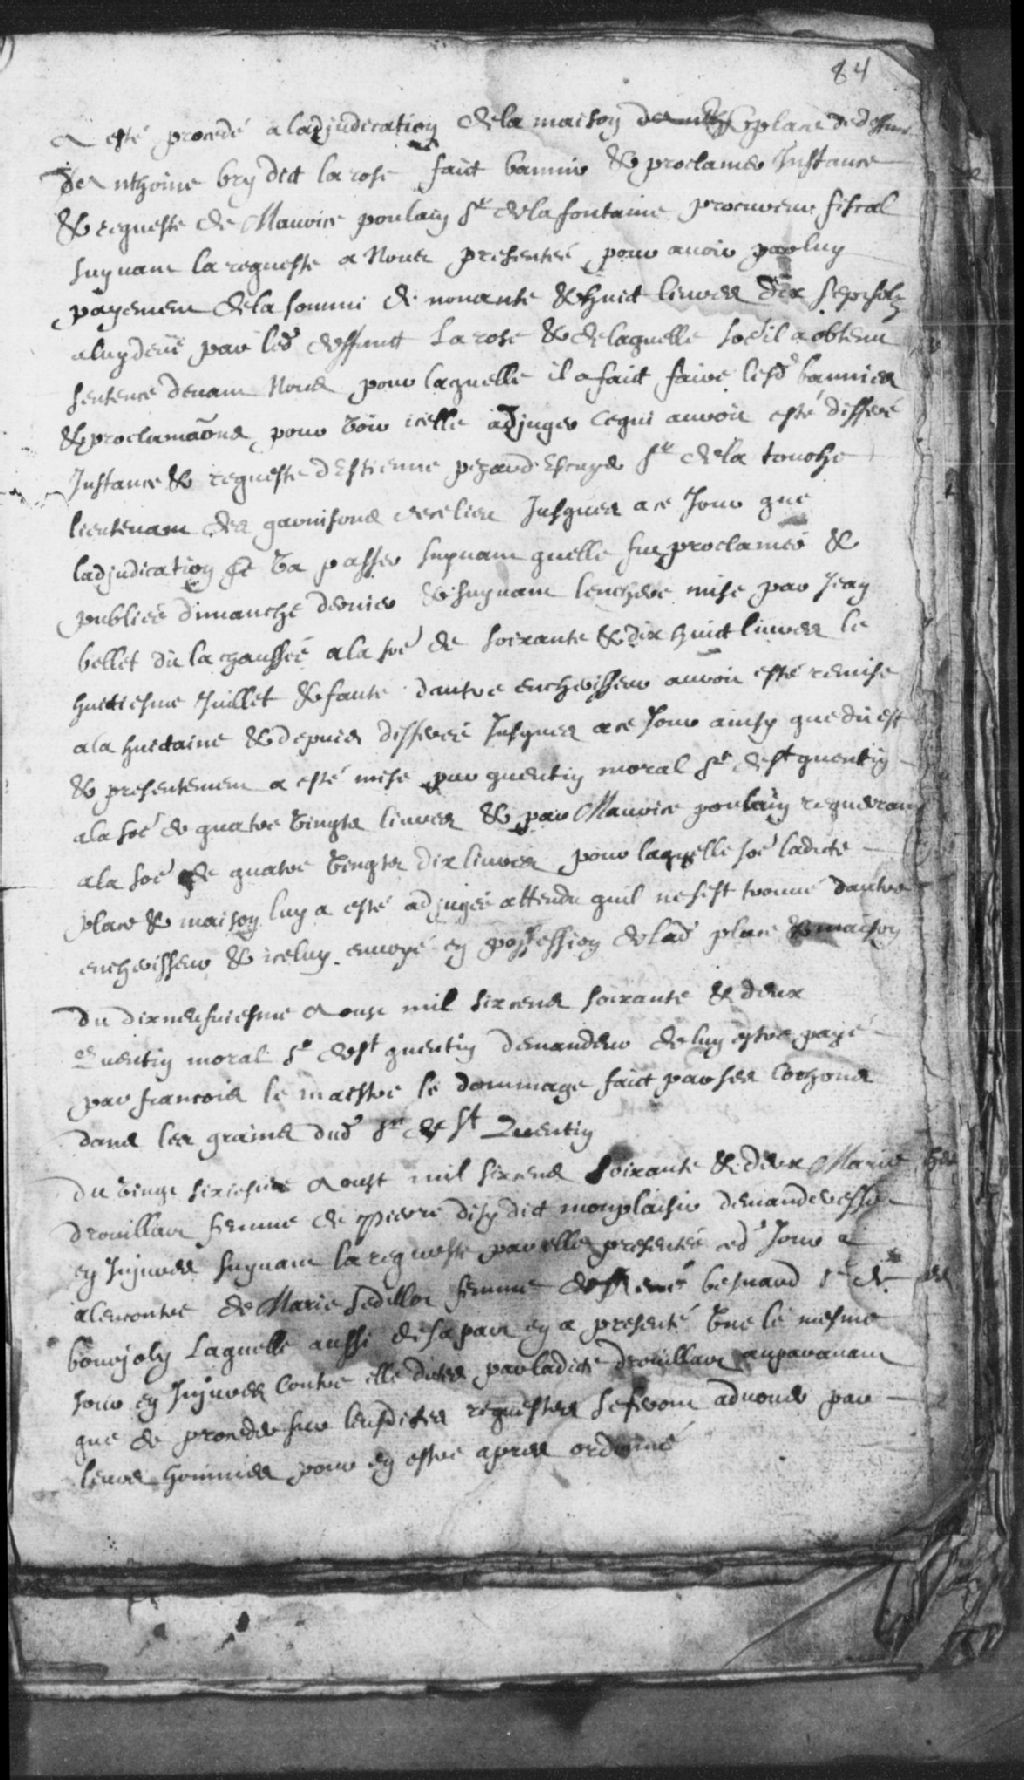 84
A esté procedé a ladjudication de la maison & place de deffunt
De Anthoine bry dict la rose faict bannir & proclamer Instance
& requeste de Mauvice poulain sr de la fontaine procuveur fiscal
suyuant la requeste a Nous presentée pour auoir par luy
payement de la somme de nonante & huict liures dix sept solz
a luy deüe par led deffunct La rose & de laquelle soe il a obtenu
sentence deuant Nous pour laquelle il a faict faire lesd bannies
& proclamaõns pour voir icelle adjuger ce qui auroit esté differé
Instance & requeste dEstienne pezard Escuyer sr de la touche
lieutenant des garnisons de ce lieu Jusques a ce Jour que
ladjudication se va passer suyuant quelle fut proclamée &
publiée dimanche dernier & suyuant lenchere mise par Jean
bellet dit la chaussée a la soe de soixante & dix huict liures le
huictiesme Juillet & faute dautre encherisseur auroit esté remise
a la huictaine & depuis differée Jusques a ce Jour ainsy que dit est
& presentement a esté mise par quentin moral sr de st quentin
a la soe de quatre vingts liures & par Mauvice poulain requerant
a la soe de quatre vingts dix liures pour laquelle soe ladicte
place & maison luy a esté adjugée attendu quil ne sest trouué dautre
encherisseur & iceluy enuoyé en possession de lad place & maison
du dixneufuiesme Aoust mil six cens soixante & deux
Quentin moral sr de st quentin demandeur de luy estre payé
par francois le maistre le dommage faict par ses Cochons
dans les grains dud sr de St Quentin
du vingt sixiesme Aoust mil six cens soixante & deux Marie
drouillart femme de pierre disy dict monplaisir demanderesse
en Injures suyuant la requeste par elle presentée ced Jour a
alencontre de Marie sedillot femme de bertrand sr de
bonvjoly Laquelle aussi de sa part en a presenté vne le mesme
Jour en Injures Contre elle dites par ladicte drouillart auparauant
que de proceder sur lesdites requestes se feront aduouer par
leurs hommes pour en estre apres ordonné